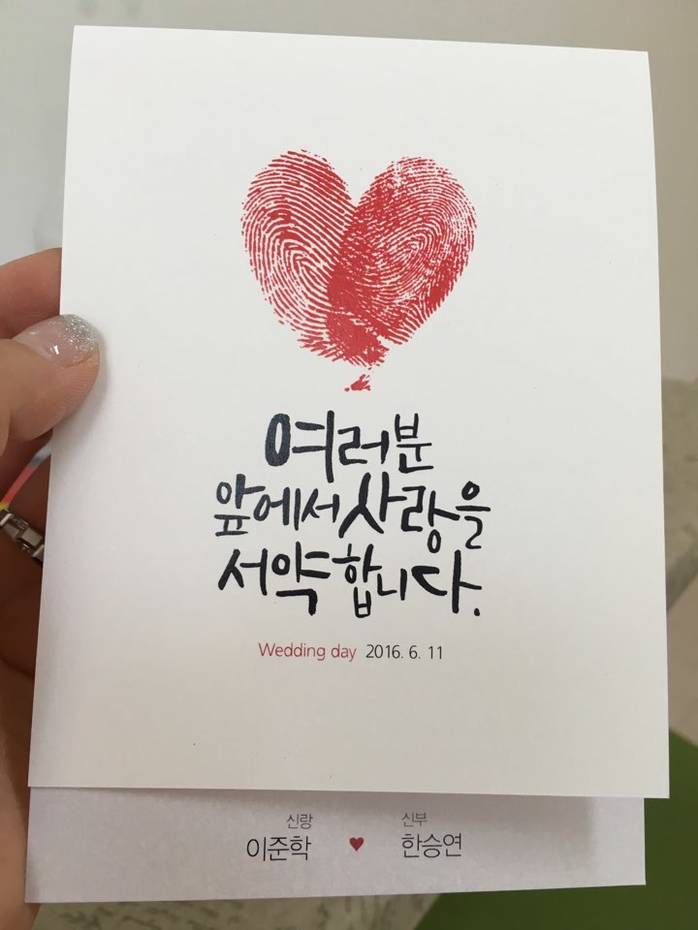 여러분
앞에서 사랑을
서약합니다.
Wedding day 2016. 6. 11
신랑 신부
이준학 ♥ 한승연